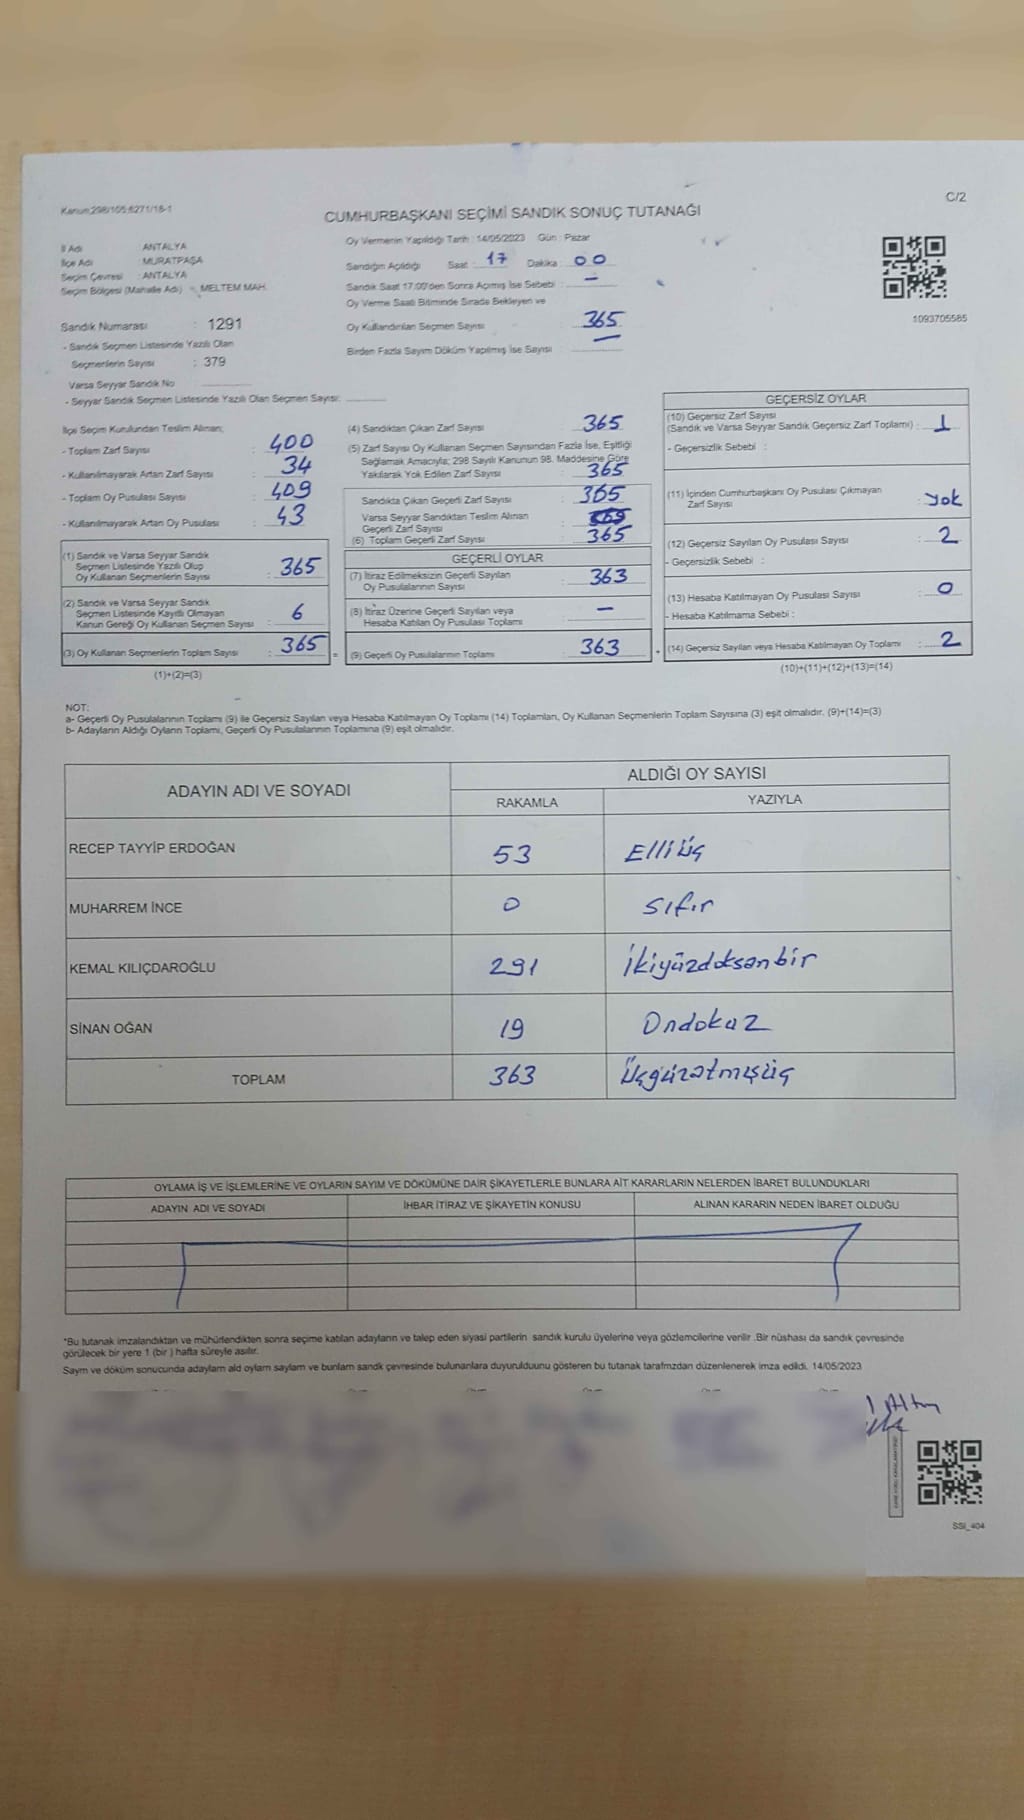 Kanun:298/105;6271/18-1
C/2
CUMHURBAŞKANI SEÇİMİ SANDIK SONUÇ TUTANAĞI
İl Adı ANTALYA
İlçe Adı MURATPAŞA
Seçim Çevresi : ANTALYA
Seçim Bölgesi (Mahalle Adı) : MELTEM MAH.
Sandık Numarası : 1291
- Sandık Seçmen Listesinde Yazılı Olan
Seçmenlerin Sayısı : 379
Varsa Seyyar Sandık No
- Seyyar Sandık Seçmen Listesinde Yazılı Olan Seçmen Sayısı:
Oy Vermenin Yapıldığı Tarih : 14/05/2023 Gün : Pazar
Sandığın Açıldığı Saat : 17 Dakika : 00
Sandık Saat 17:00'den Sonra Açımış İse Sebebi : -
Oy Verme Saati Bitiminde Sırada Bekleyen ve
Oy Kullandırılan Seçmen Sayısı : 365
Birden Fazla Sayım Döküm Yapılmış İse Sayısı :
1093705585
İlçe Seçim Kurulundan Teslim Alınan;
- Toplam Zarf Sayısı : 400
- Kullanılmayarak Artan Zarf Sayısı : 34
- Toplam Oy Pusulası Sayısı : 409
- Kullanılmayarak Artan Oy Pusulası : 43
(1) Sandık ve Varsa Seyyar Sandık
Seçmen Listesinde Yazılı Olup
Oy Kullanan Seçmenlerin Sayısı : 365
(2) Sandık ve Varsa Seyyar Sandık
Seçmen Listesinde Kayıtlı Olmayan
Kanun Gereği Oy Kullanan Seçmen Sayısı : 6
(3) Oy Kullanan Seçmenlerin Toplam Sayısı : 365 =
(1)+(2)=(3)
(4) Sandıktan Çıkan Zarf Sayısı : 365
(5) Zarf Sayısı Oy Kullanan Seçmen Sayısından Fazla İse, Eşitliği
Sağlamak Amacıyla; 298 Sayılı Kanunun 98. Maddesine Göre
Yakılarak Yok Edilen Zarf Sayısı : 365
Sandıkta Çıkan Geçerli Zarf Sayısı : 365
Varsa Seyyar Sandıktan Teslim Alınan
Geçerli Zarf Sayısı :
(6) Toplam Geçerli Zarf Sayısı : 365
GEÇERLİ OYLAR
(7) İtiraz Edilmeksizin Geçerli Sayılan
Oy Pusulalarının Sayısı : 363
(8) İtiraz Üzerine Geçerli Sayılan veya
Hesaba Katılan Oy Pusulası Toplamı : -
(9) Geçerli Oy Pusulalarının Toplamı : 363 +
GEÇERSİZ OYLAR
(10) Geçersiz Zarf Sayısı
(Sandık ve Varsa Seyyar Sandık Geçersiz Zarf Toplamı) : 1
- Geçersizlik Sebebi :
(11) İçinden Cumhurbaşkanı Oy Pusulası Çıkmayan
Zarf Sayısı : yok
(12) Geçersiz Sayılan Oy Pusulası Sayısı : 2
- Geçersizlik Sebebi :
(13) Hesaba Katılmayan Oy Pusulası Sayısı : 0
- Hesaba Katılmama Sebebi :
(14) Geçersiz Sayılan veya Hesaba Katılmayan Oy Toplamı : 2
(10)+(11)+(12)+(13)=(14)
NOT:
a- Geçerli Oy Pusulalarının Toplamı (9) ile Geçersiz Sayılan veya Hesaba Katılmayan Oy Toplamı (14) Toplamları, Oy Kullanan Seçmenlerin Toplam Sayısına (3) eşit olmalıdır. (9)+(14)=(3)
b- Adayların Aldığı Oyların Toplamı, Geçerli Oy Pusulalarının Toplamına (9) eşit olmalıdır.
ADAYIN ADI VE SOYADI ALDIĞI OY SAYISI
RAKAMLA YAZIYLA
RECEP TAYYİP ERDOĞAN 53 Elliüç
MUHARREM İNCE 0 Sıfır
KEMAL KILIÇDAROĞLU 291 İkiyüzdoksanbir
SİNAN OĞAN 19 Ondokuz
TOPLAM 363 Üçyüzatmışüç
OYLAMA İŞ VE İŞLEMLERİNE VE OYLARIN SAYIM VE DÖKÜMÜNE DAİR ŞİKAYETLERLE BUNLARA AİT KARARLARIN NELERDEN İBARET BULUNDUKLARI
ADAYIN ADI VE SOYADI İHBAR İTİRAZ VE ŞİKAYETİN KONUSU ALINAN KARARIN NEDEN İBARET OLDUĞU
*Bu tutanak imzalandıktan ve mühürlendikten sonra seçime katılan adayların ve talep eden siyasi partilerin sandık kurulu üyelerine veya gözlemcilerine verilir .Bir nüshası da sandık çevresinde
görülecek bir yere 1 (bir ) hafta süreyle asılır.
Sayım ve döküm sonucunda adayların ald oyların sayıları ve bunların sandk çevresinde bulunanlara duyurulduunu gösteren bu tutanak tarafmzdan düzenlenerek imza edildi. 14/05/2023
SSI_404